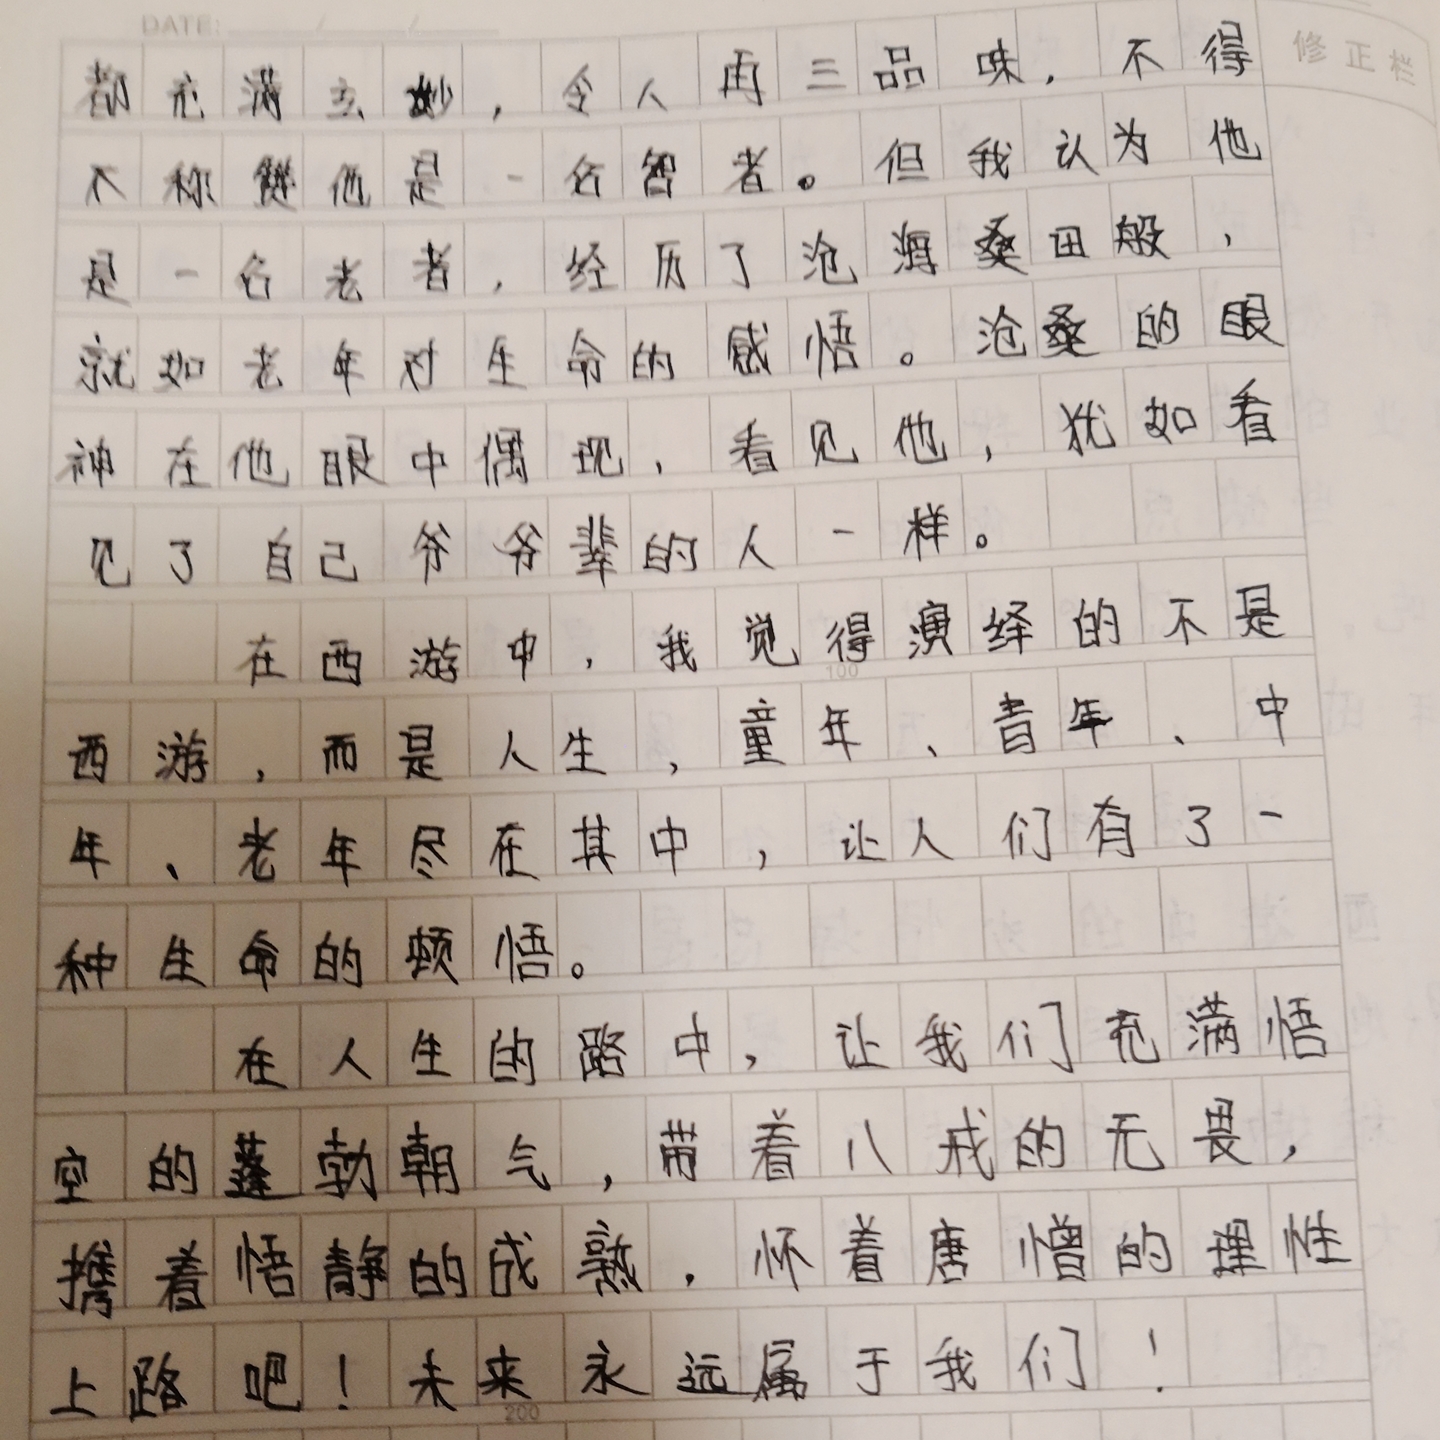 DATE:
修正栏
都充满玄妙，令人再三品味，不得
不称他是一名智者。但我认为他
是一名老者，经历了沧海桑田般，
就如老年对生命的感悟。沧桑的眼
神在他眼中偶现，看见他，犹如看
见了自己爷爷辈的人一样。
在西游中，我觉得演绎的不是
100
西游，而是人生，童年、青年、中
年、老年尽在其中，让人们有了一
种生命的顿悟。
在人生的路中，让我们充满悟
空的蓬勃朝气，带着八戒的无畏，
携着悟静的成熟，怀着唐憎的理性
上路吧！未来永远属于我们！
200